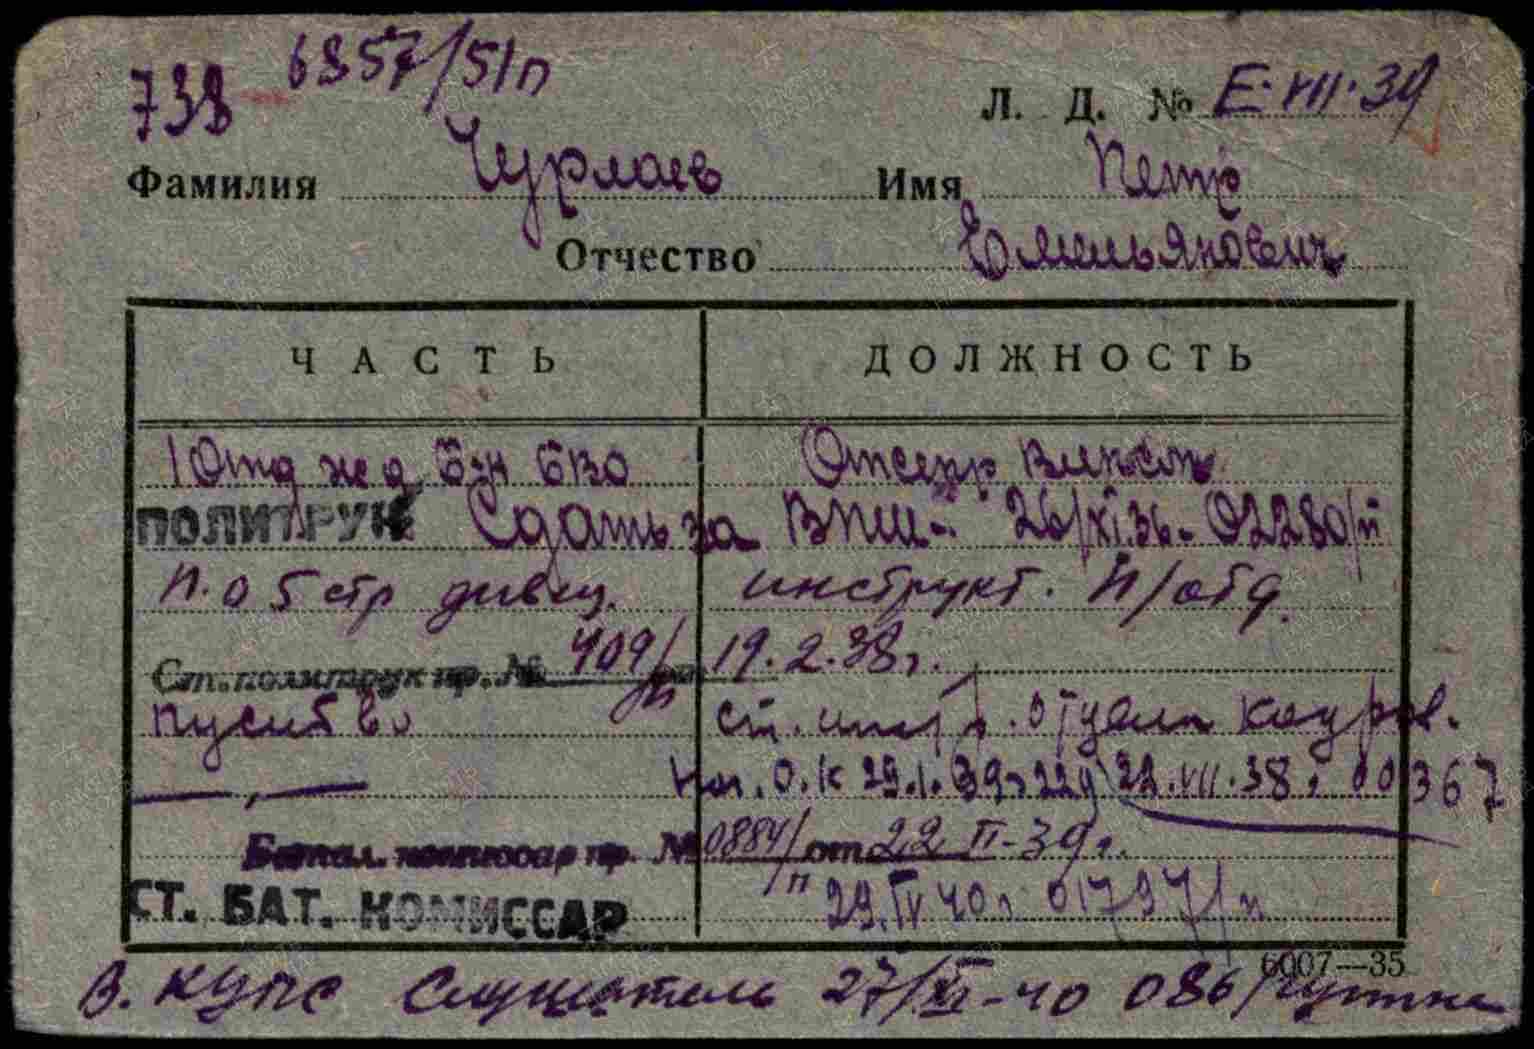 738 6857/51п
Л. Д. № Е.VII.39
Фамилия Чурлаев Имя Петр
Отчество Емельянович
ЧАСТЬ ДОЛЖНОСТЬ
1 Отд жд б-н БВО Отсекр
ПОЛИТРУК Сдать за ВПШ-. 26/XI.36. 02280/п
п.о 5 стр дивиз. инструкт. п/отд.
Ст. политрук пр. № 409/п от 19.2.38г.
ст. отдела кадров.
Нач. О.К 29.1.39г. 229 22.VII.38г 00367
Батал. комиссар пр. № 0884/п от 22 II-39г.
СТ. БАТ. КОМИССАР 29.IV 40г 01797/п
6007—35
В. КУПС Слушатель 27/XI-40 086/